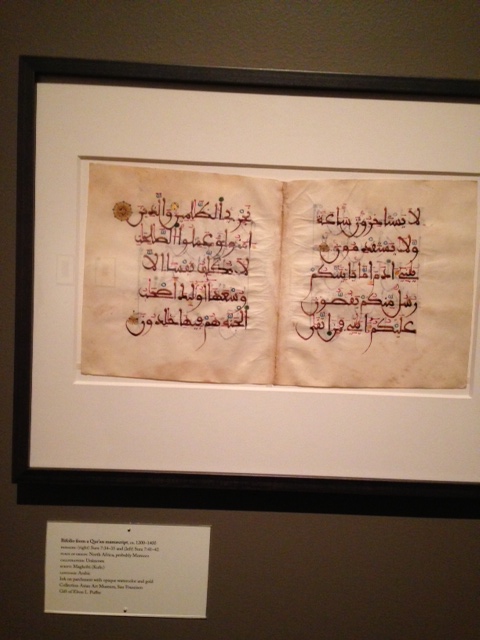 لا يستاخرون ساعة
ولا يستقدمون
يبني ادم اما ياتينكم
رسل منكم يقصون
عليكم ايتي فمن اتقى
نجزي الظلمين والذين
امنوا وعملوا الصلحت
لا نكلف نفسا الا
وسعها اوليك اصحب
الجنة هم فيها خلدون
Bifolio from a Qur'an manuscript, ca. 1300–1400
(right) Sura 7:34–35 and (left) Sura 7:41–42
North Africa, probably Morocco
Unknown
Maghribi
Arabic
Ink on parchment with opaque watercolor and gold
Collection Asian Art Museum, San Francisco
Gift of